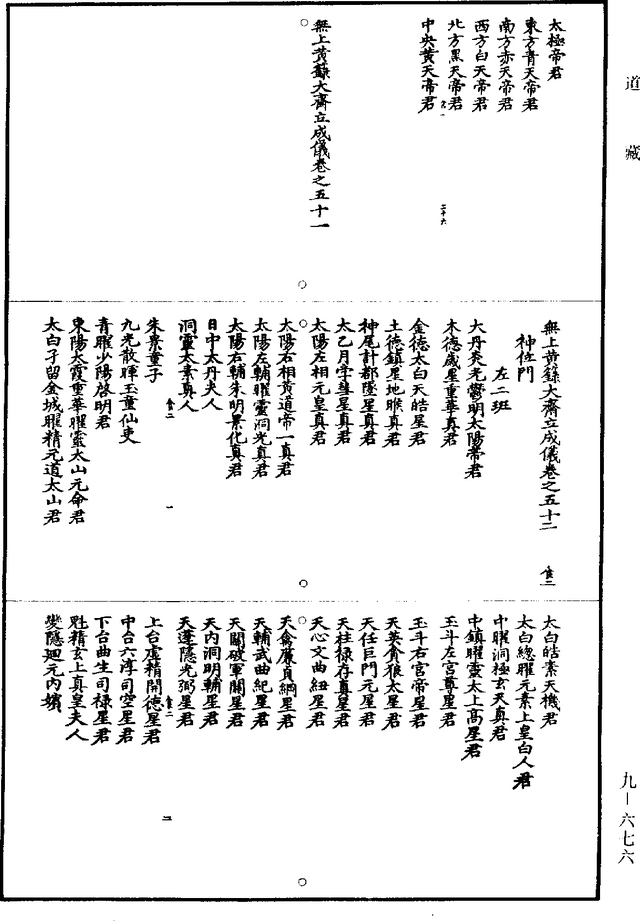 道藏
太極帝君
東方青天帝君
南方赤天帝君
西方白天帝君
北方黑天帝君
二十六
中央黃天帝君
無上黃籙大齋立成儀卷之五十一
無上黃籙大齋立成儀卷之五十二
神位門
左二班
大丹炎光鬱明太陽帝君
木德歲星重華真君
金德太白天皓星君
土德鎮星地睺真君
神尾計都墜星真君
太乙月孛彗星真君
太陽左相元皇真君
太陽右相黃道帝一真君
太陽左輔曜靈洞光真君
太陽右輔朱明景化真君
日中太丹夫人
洞靈太素真人
一
朱景童子
九光散暉玉童仙吏
青曜少陽啓明君
東陽太霞重華曜靈太山元命君
太白子留金城曜精元道太山君
太白皓素天機君
太白總曜元素上皇白人君
中曜洞極玄天真君
中鎮曜靈太上高星君
玉斗左宮尊星君
玉斗右宮帝星君
天英貪狼太星君
天任巨門元星君
天柱祿存真星君
天心文曲紐星君
天禽廉貞綱星君
天輔武曲紀星君
天關破軍關星君
天內洞明輔星君
天蓬隱光弼星君
二
上台虛精開德星君
中台六淳司空星君
下台曲生司祿星君
魁精玄上真皇夫人
變隱迴元內嬪
九－六七六